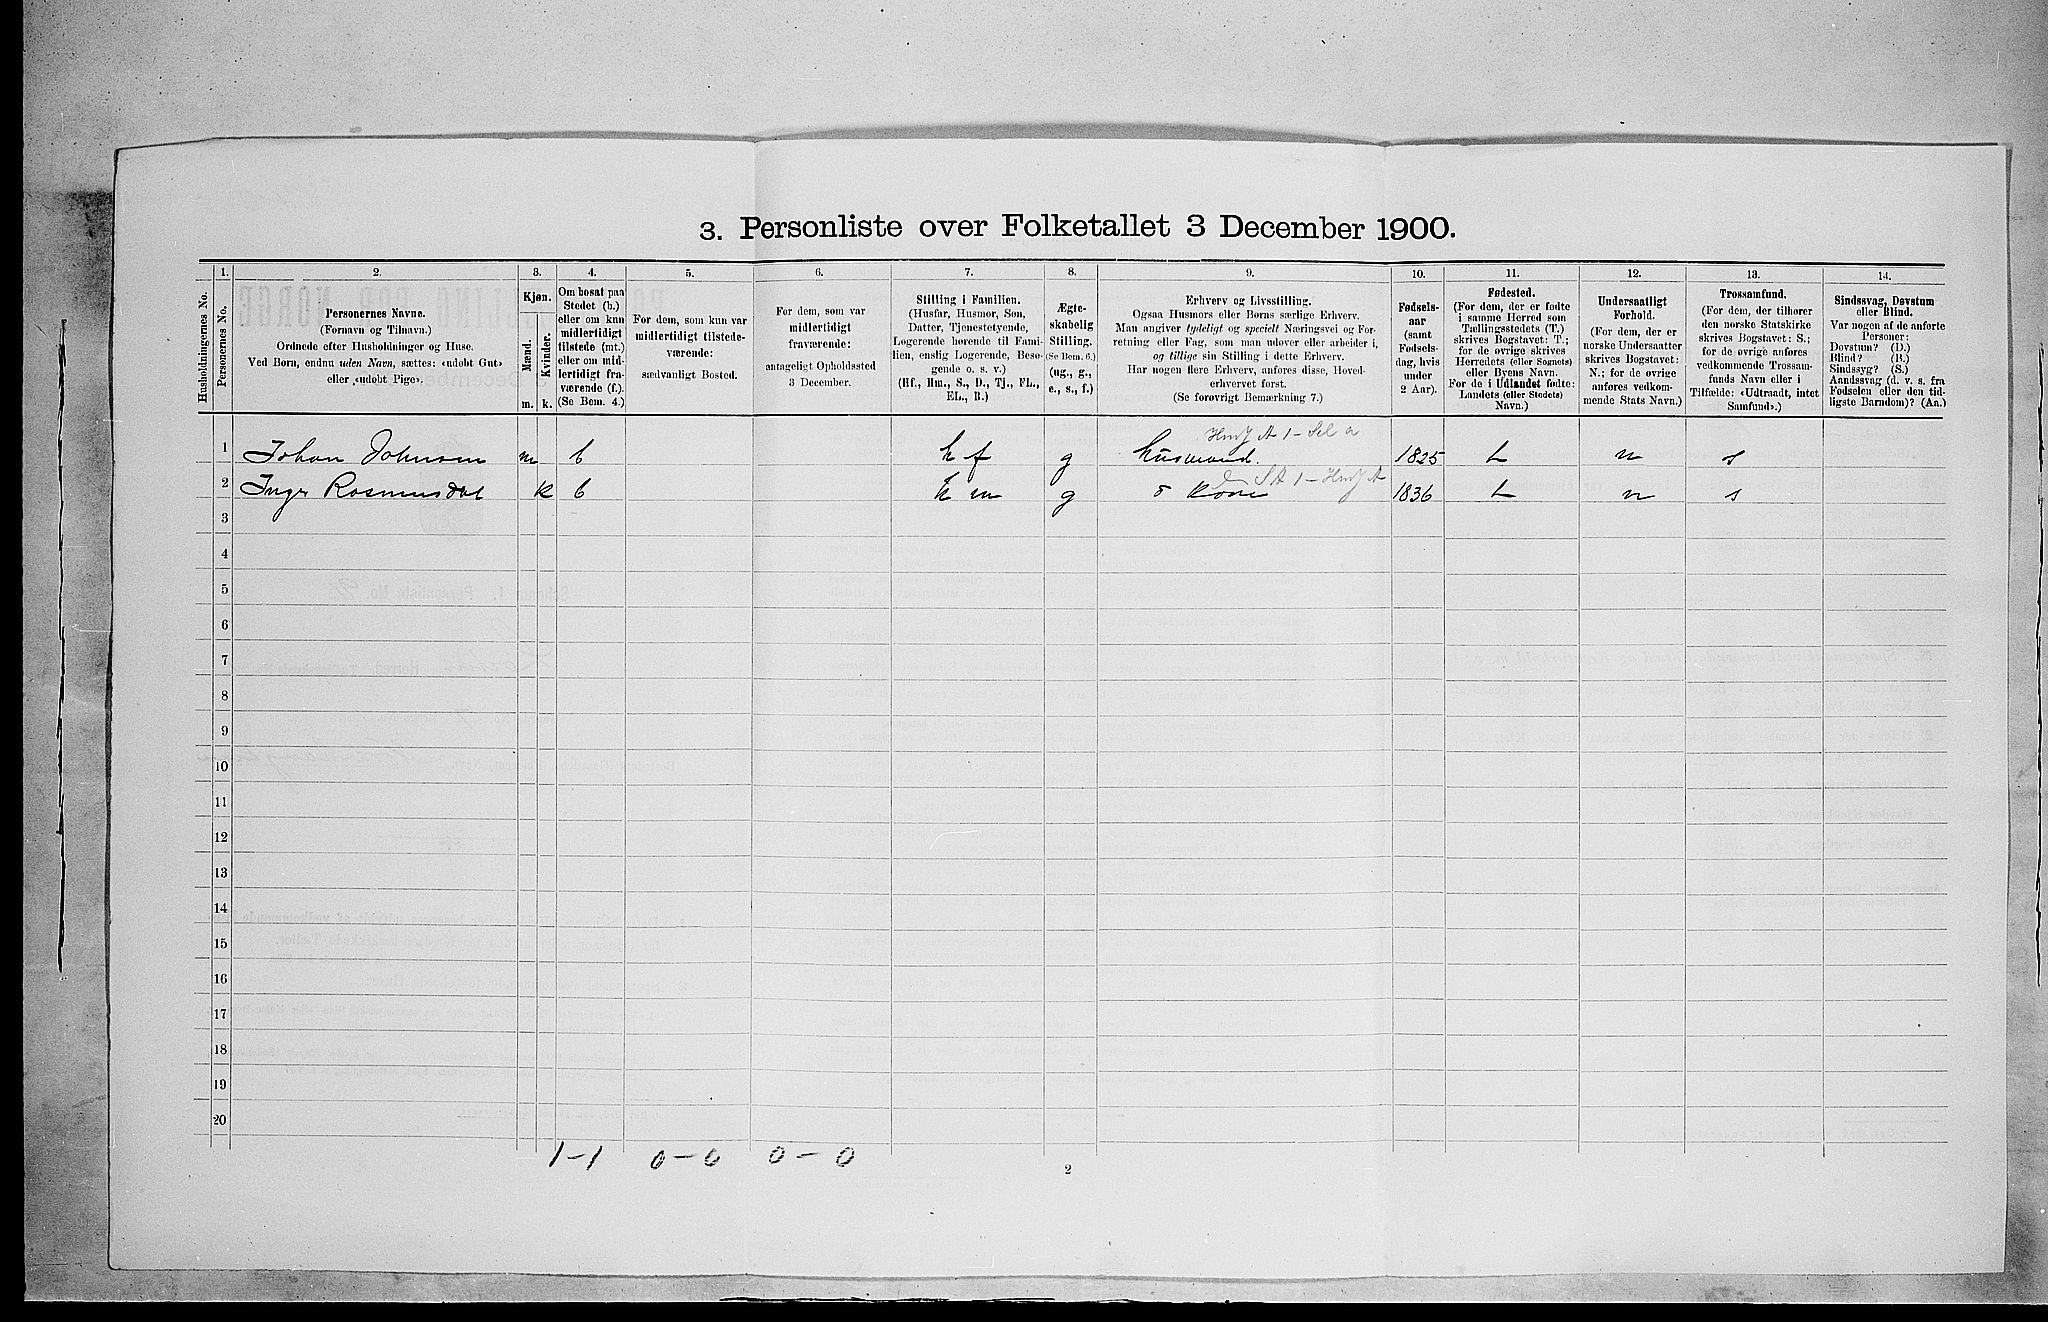 3. Personliste over Folketallet 3 December 1900.
Husholdningernes No.
1.
Personernes No.
2.
Personernes Navne.
(Fornavn og Tilnavn.)
Ordnede efter Husholdninger og Huse.
Ved Børn, endnu uden Navn, sættes: «udøbt Gut»
eller «udøbt Pige».
3.
Kjøn.
Mænd.
Kvinder.
m. k.
4.
Om bosat paa
Stedet (b.)
eller om kun
midlertidigt
tilstede (mt.)
eller om mid-
lertidigt fra-
værende (f.).
(Se Bem. 4.)
5.
For dem, som kun var
midlertidigt tilstede-
værende:
sædvanligt Bosted.
6.
For dem, som var
midlertidigt
fraværende:
antageligt Opholdssted
3 December.
7.
Stilling i Familien.
(Husfar, Husmor, Søn,
Datter, Tjenestetyende,
Logerende hørende til Fami-
lien, enslig Logerende, Besø-
gende o. s. v.)
(Hf., Hm., S., D., Tj., FL.,
EL., B.)
8.
Ægte-
skabelig
Stilling.
(Se Bem. 6.)
(ug., g.,
e., s., f.)
9.
Erhverv og Livsstilling.
Ogsaa Husmors eller Børns særlige Erhverv.
Man angiver tydeligt og specielt Næringsvei og For-
retning eller Fag, som man udøver eller arbeider i,
og tillige sin Stilling i dette Erhverv.
Har nogen flere Erhverv, anføres disse, Hoved-
erhvervet først.
(Se forøvrigt Bemærkning 7.)
10.
Fødsels-
aar
(samt
Fødsels-
dag, hvis
under
2 Aar).
11.
Fødested.
(For dem, der er fødte
i samme Herred som
Tællingsstedets (T.)
skrives Bogstavet: T.;
for de øvrige skrives
Herredets (eller Sognets)
eller Byens Navn.
For de i Udlandet fødte:
Landets (eller Stedets)
Navn.)
12.
Undersaatligt
Forhold.
(For dem, der er
norske Undersaatter
skrives Bogstavet:
N.; for de øvrige
anføres vedkom-
mende Stats Navn.)
13.
Trossamfund.
(For dem, der tilhører
den norske Statskirke
skrives Bogstavet: S.;
for de øvrige anføres
vedkommende Trossam-
funds Navn eller i
Tilfælde: «Udtraadt, intet
Samfund».)
14.
Sindssvag, Døvstum
eller Blind.
Var nogen af de anførte
Personer:
Døvstum? (D.)
Blind? (B.)
Sindssyg? (S.)
Aandssvag (d. v. s. fra
Fødselen eller den tid-
ligste Barndom)? (Aa.)
1 Johan Johnsen m b h f g husmand. 1825 t n s
2 Inger Rasmusdat k b h m g d kone 1836 t n s
3
4
5
6
7
8
9
10
11
12
13
14
15
16
17
18
19
20
1-1 0-0 0-0
2